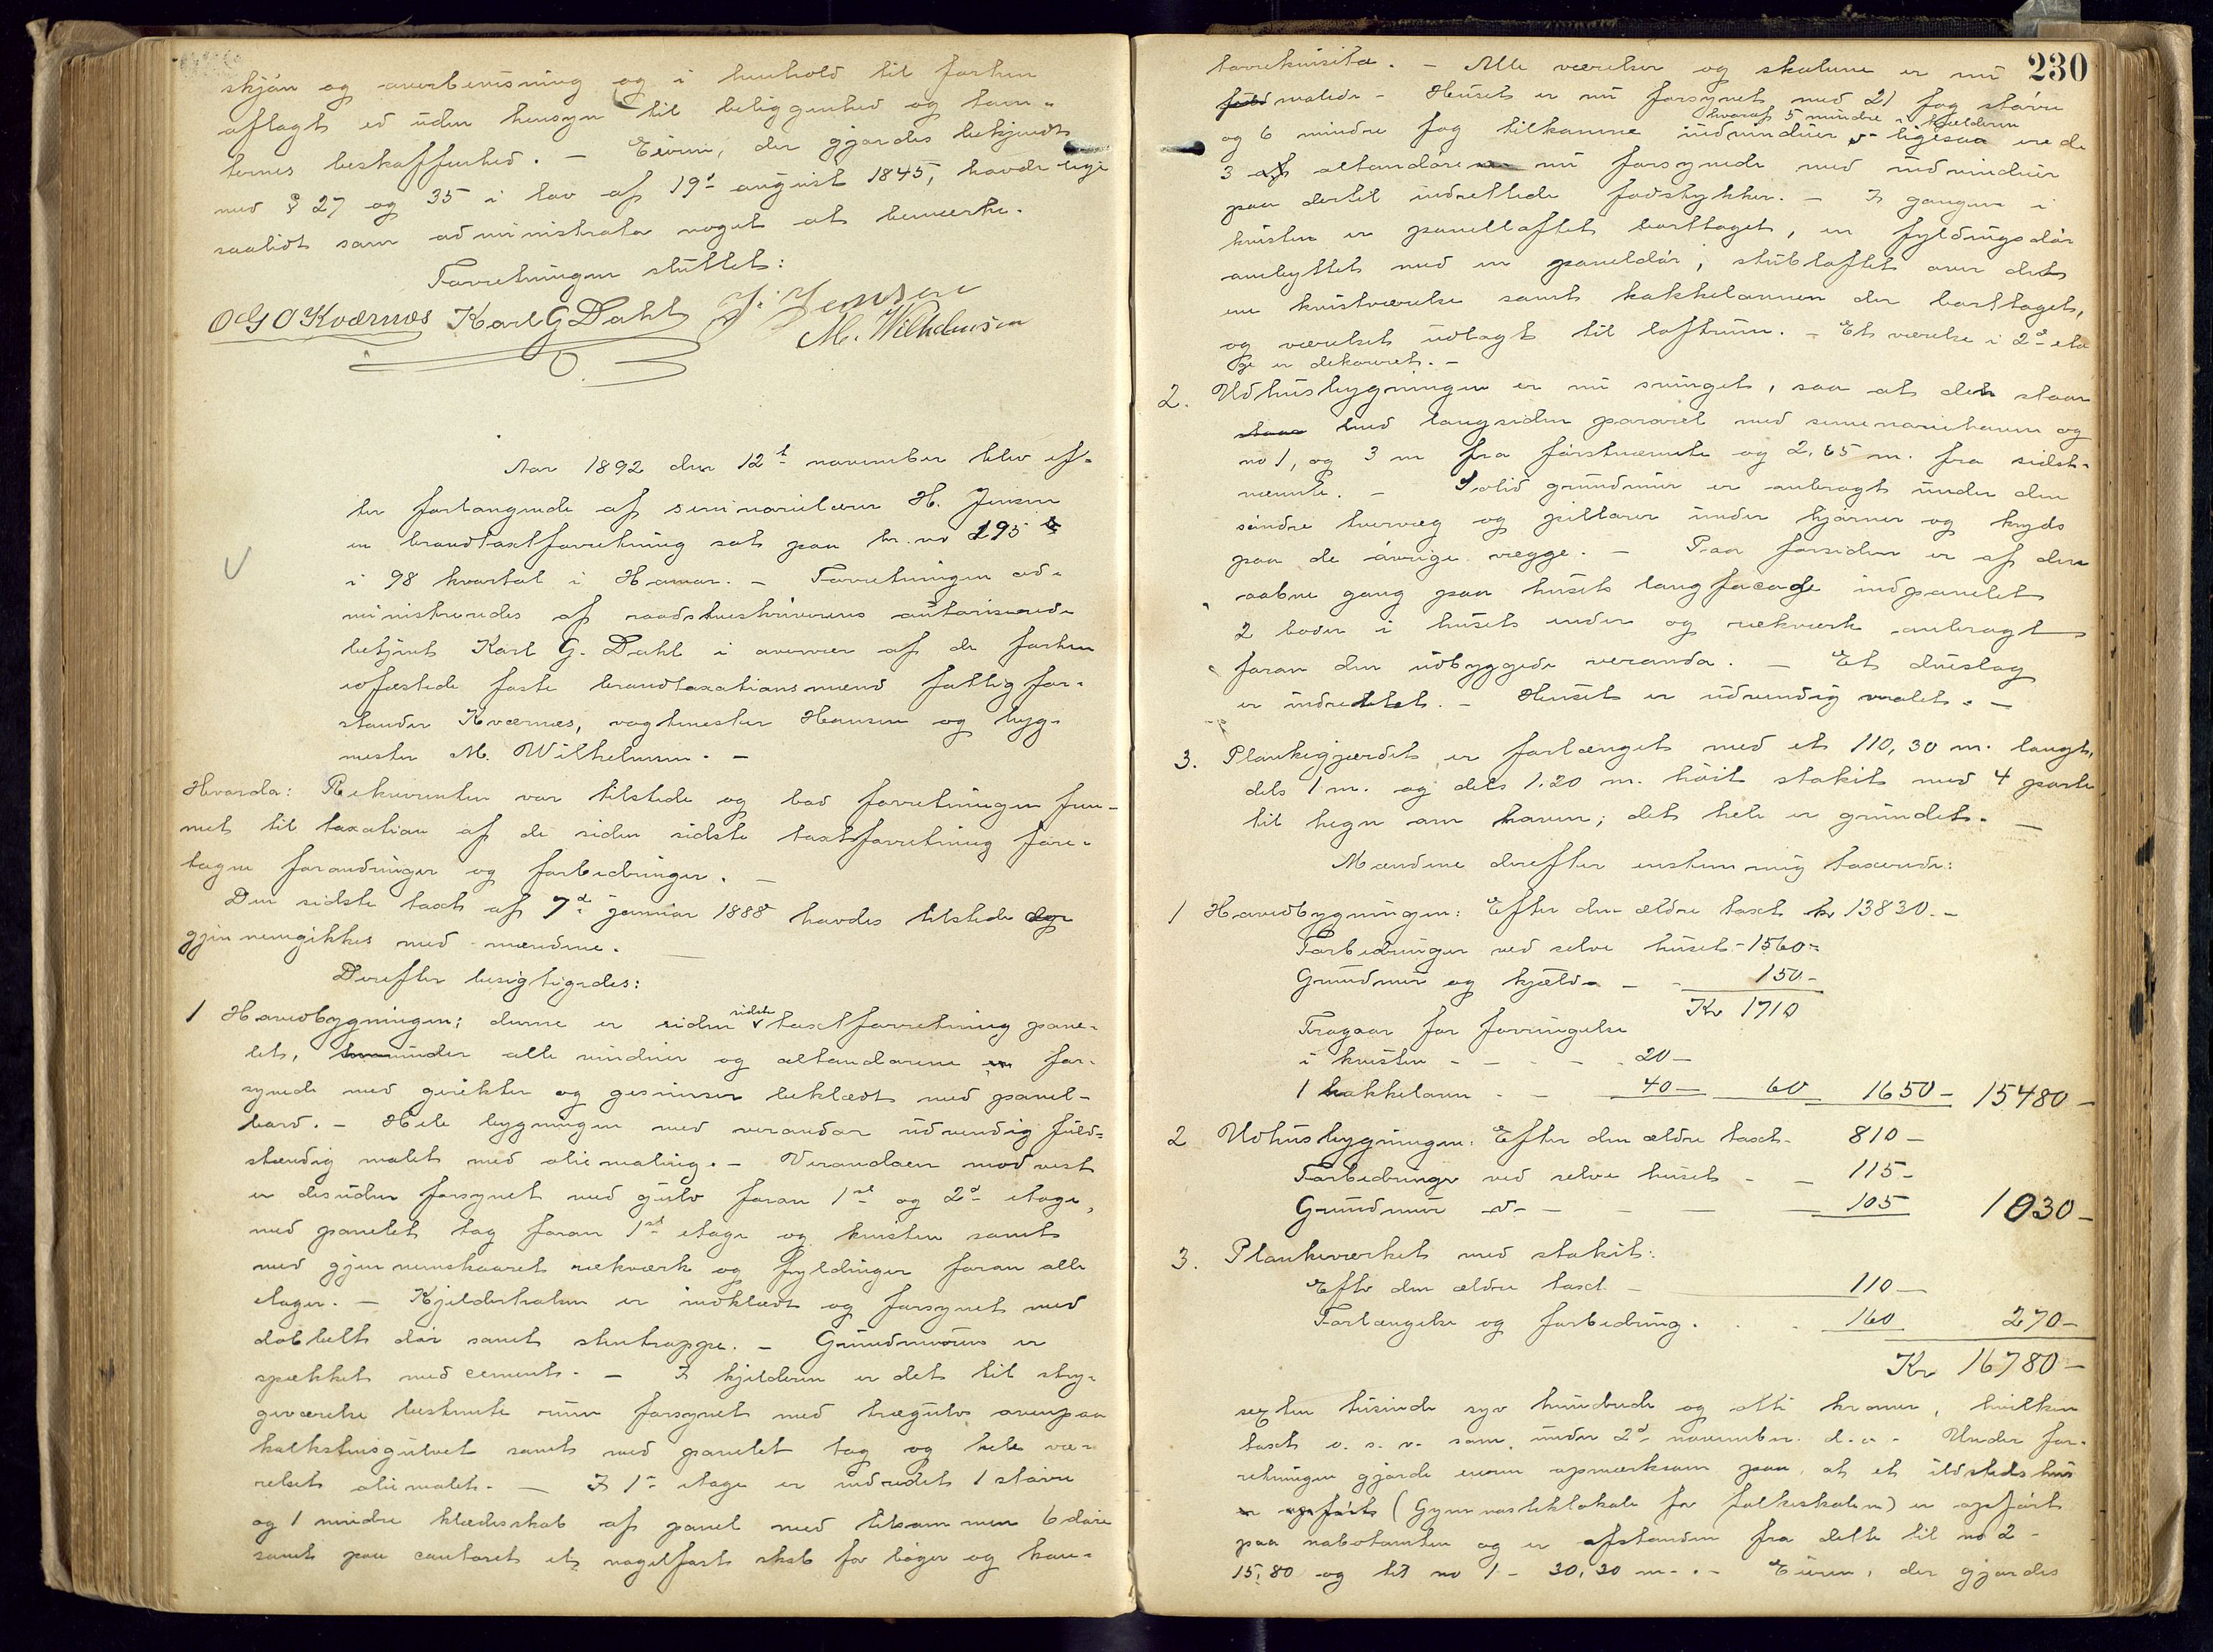 skjøn og overbevisning og i henhold til forhen
aflagt ed uden hensyn til beliggenhed og tom-
ternes beskaffenhed. - Eieren, der gjordes bekjendt
med § 27 og 35 i lov af 19d august 1845, havde lige
saalidt som administrator noget at bemærke.
Forretningen sluttet:
O G O Kværnæs Karl G Dahl J. Jensen
M. Wilhelmsen
Aar 1892 den 12t november blev ef-
ter forlangende af seminarielærer H. Jensen
en brandtaxtforretning sat paa br. no 195 b
i 98 kvartal i Hamar. - Forretningen ad-
ministreredes af raadstueskriverens autoriserede
betjent Karl G. Dahl i overvær af de forhen
edfæstede faste brandtaxationsmænd fattigfor-
stander Kværnæs, vagtmester Hansen og byg-
mester M. Wilhelmsen. -
Hvorda: Rekvirenten var tilstede og bad forretningen frem-
met til taxation af de siden sidste taxtforretning fore-
tagne forandringer og forbedringer. -
Den sidste taxt af 7de januar 1888 havdes tilstede og
gjennemgikkes med mændene. -
Derefter besigtigedes:
1 Hovedbygningen; denne er siden sidste taxtforretning pane-
let, under alle vinduer og altandørene er for-
synede med gerikter og gesimser beklædt med panel-
bord. - Hele bygningen med verandar udvendig fuld-
stændig malet med oliemaling. - Verandaen mod vest
er desuden forsynet med gulv foran 1ste og 2d etage,
med panelet tag foran 1ste etage og kvisten samt
med gjennemskaaret rækværk og fyldinger foran alle
etager. - Kjelderhalsen er indklædt og forsynet med
dobbelt dør samt stentrappe. - Grundmuren er
spækket med cement. - I kjelderen er det til stry-
geværelse bestemte rum forsynet med trægulv ovenpaa
kalkstensgulvet samt med panelet tag og hele væ-
relset oliemalet. - I 1- etage er indredet 1 større
og 1 mindre klædeskab af panel med tilsammen 6 døre
samt paa contoret et nagelfast skab for bøger og kon-
230
torrekvisita. - Alle værelser og skabene er nu
malede - Huset er nu forsynet med 21 fag større
hvoraf 5 mindre i kjelderen
og 6 mindre fag tilkomne indvinduer v- ligesaa er de
3 altandøre nu forsynede med indvinduer
paa dertil indrettede fodstykker. - I gangen i
kvisten er panelloftet borttaget, en fyldingsdør
ombyttet med en paneldør, stubloftet over det
ene kvistværelse samt kakkelovnen der borttaget,
og værelset udlagt til loftrum. - Et værelse i 2d eta
ge er dekoreret. -
2. Udhusbygningen er nu svinget, saa at den staar
med langsiden pararel med seminariehaven og
no 1, og 3 m fra førstnævnte og 2,65 m. fra sidst-
nævnte. - Solid grundmur er anbragt under den
søndre tvervæg og pillarer under hjørner og kryds
paa de øvrige vægge. - Paa forsiden er af den
aabne gang paa husets langfacade indpanelet
2 boder i husets ender og rækværk anbragt
foran den udbyggede veranda. - Et dueslag
er indredtet. - Huset er udvendig malet. -
3. Plankegjærdet er forlænget med et 110,30 m. langt,
dels 1 m. og dels 1.20 m. høit stakit med 4 porte
til hegn om haven; det hele er grundet. -
Mændene derefter enstemmig taxerede:
1 Hovedbygningen: Efter den ældre taxt kr 13830.-
Forbedringer ved selve huset - 1560-
Grundmur og kjeld - - 150-
Kr 1710
Fragaar for forringelse
i kvisten - - - - 20-
1 kakkelovn - - 40- 60 1650- 15480-
2 Udhusbygningen: Efter den ældre taxt- 810-
Forbedringer ved selve huset - - 115-
Grundmur -v- - - - 105 1030-
3. Plankeværket med stakit:
Efter den ældre taxt - 110-
Forlængelse og forbedring. 160 270-
Kr 16780-
sexten tusinde syv hundrede og otti kroner, hvilken
taxt o. s. v. som under 2d november d.a. - Under for-
retningen gjorde eieren opmærksom paa, at et ildstedshus
(Gymnastiklokale for folkeskolen) er opført
paa nabotomten og er afstanden fra dette til no 2 -
15,80 og til no 1 - 30,30 m-. - Eieren, der gjordes